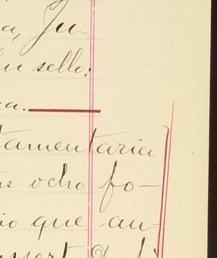 a, Ju-
sello:
a.
tamentaria
s ocho fo-
io que au-